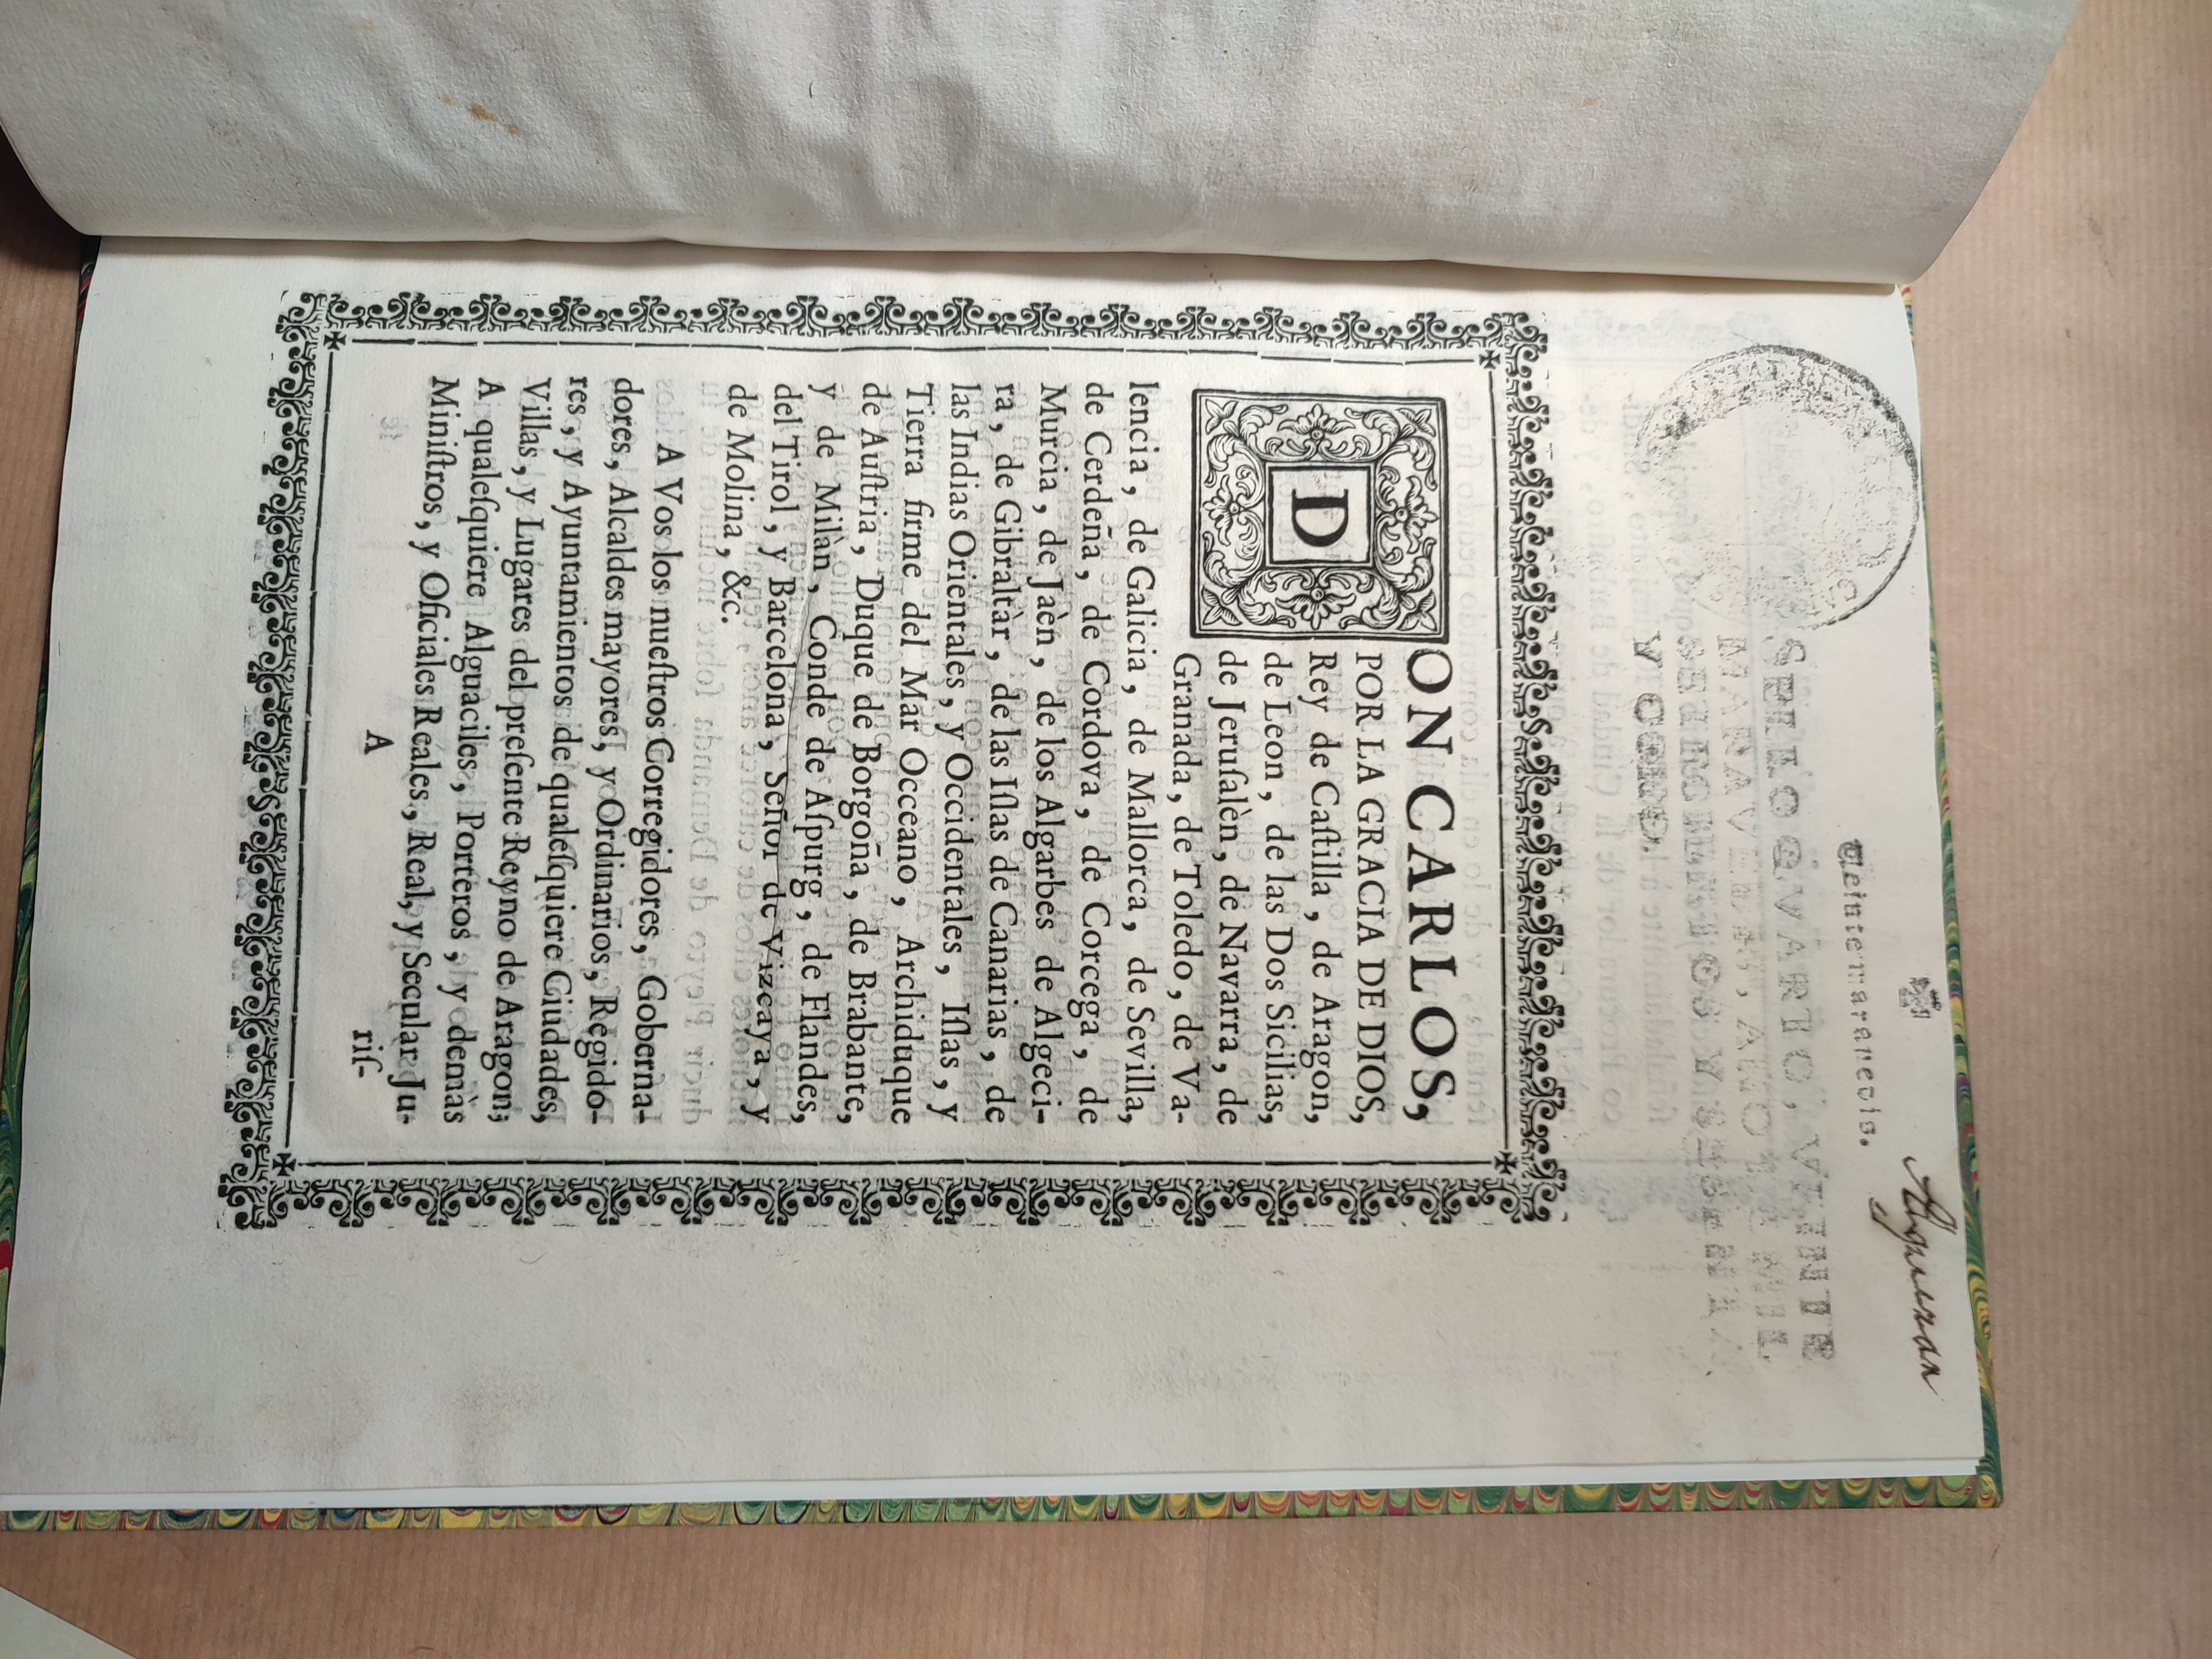 Veinte maravedis.
SELLO QVARTO, VEINTE
MARAVEDIS, AÑO DE MIL
SETECIENTOS Y SESENTA
Y OCHO.
DON CARLOS,
POR LA GRACIA DE DIOS,
Rey de Caſtilla, de Aragon,
de Leon, de las Dos Sicilias,
de Jeruſalèn, de Navarra, de
Granada, de Toledo, de Va-
lencia, de Galicia, de Mallorca, de Sevilla,
de Cerdeña, de Cordova, de Corcega, de
Murcia, de Jaèn, de los Algarbes de Algeci-
ra, de Gibraltàr, de las Iſlas de Canarias, de
las Indias Orientales, y Occidentales, Iſlas, y
Tierra firme del Mar Occeano, Archiduque
de Auſtria, Duque de Borgoña, de Brabante,
y de Milàn, Conde de Aſpurg, de Flandes,
del Tirol, y Barcelona, Señor de Vizcaya, y
de Molina, &c.
A Vos los nueſtros Corregidores, Goberna-
dores, Alcaldes mayores, y Ordinarios, Regido-
res, y Ayuntamientos de qualeſquiere Ciudades,
Villas, y Lugares del preſente Reyno de Aragon;
A qualeſquiere Alguaciles, Porteros, y demàs
Miniſtros, y Oficiales Reales, Real, y Secular Ju-
A
riſ-